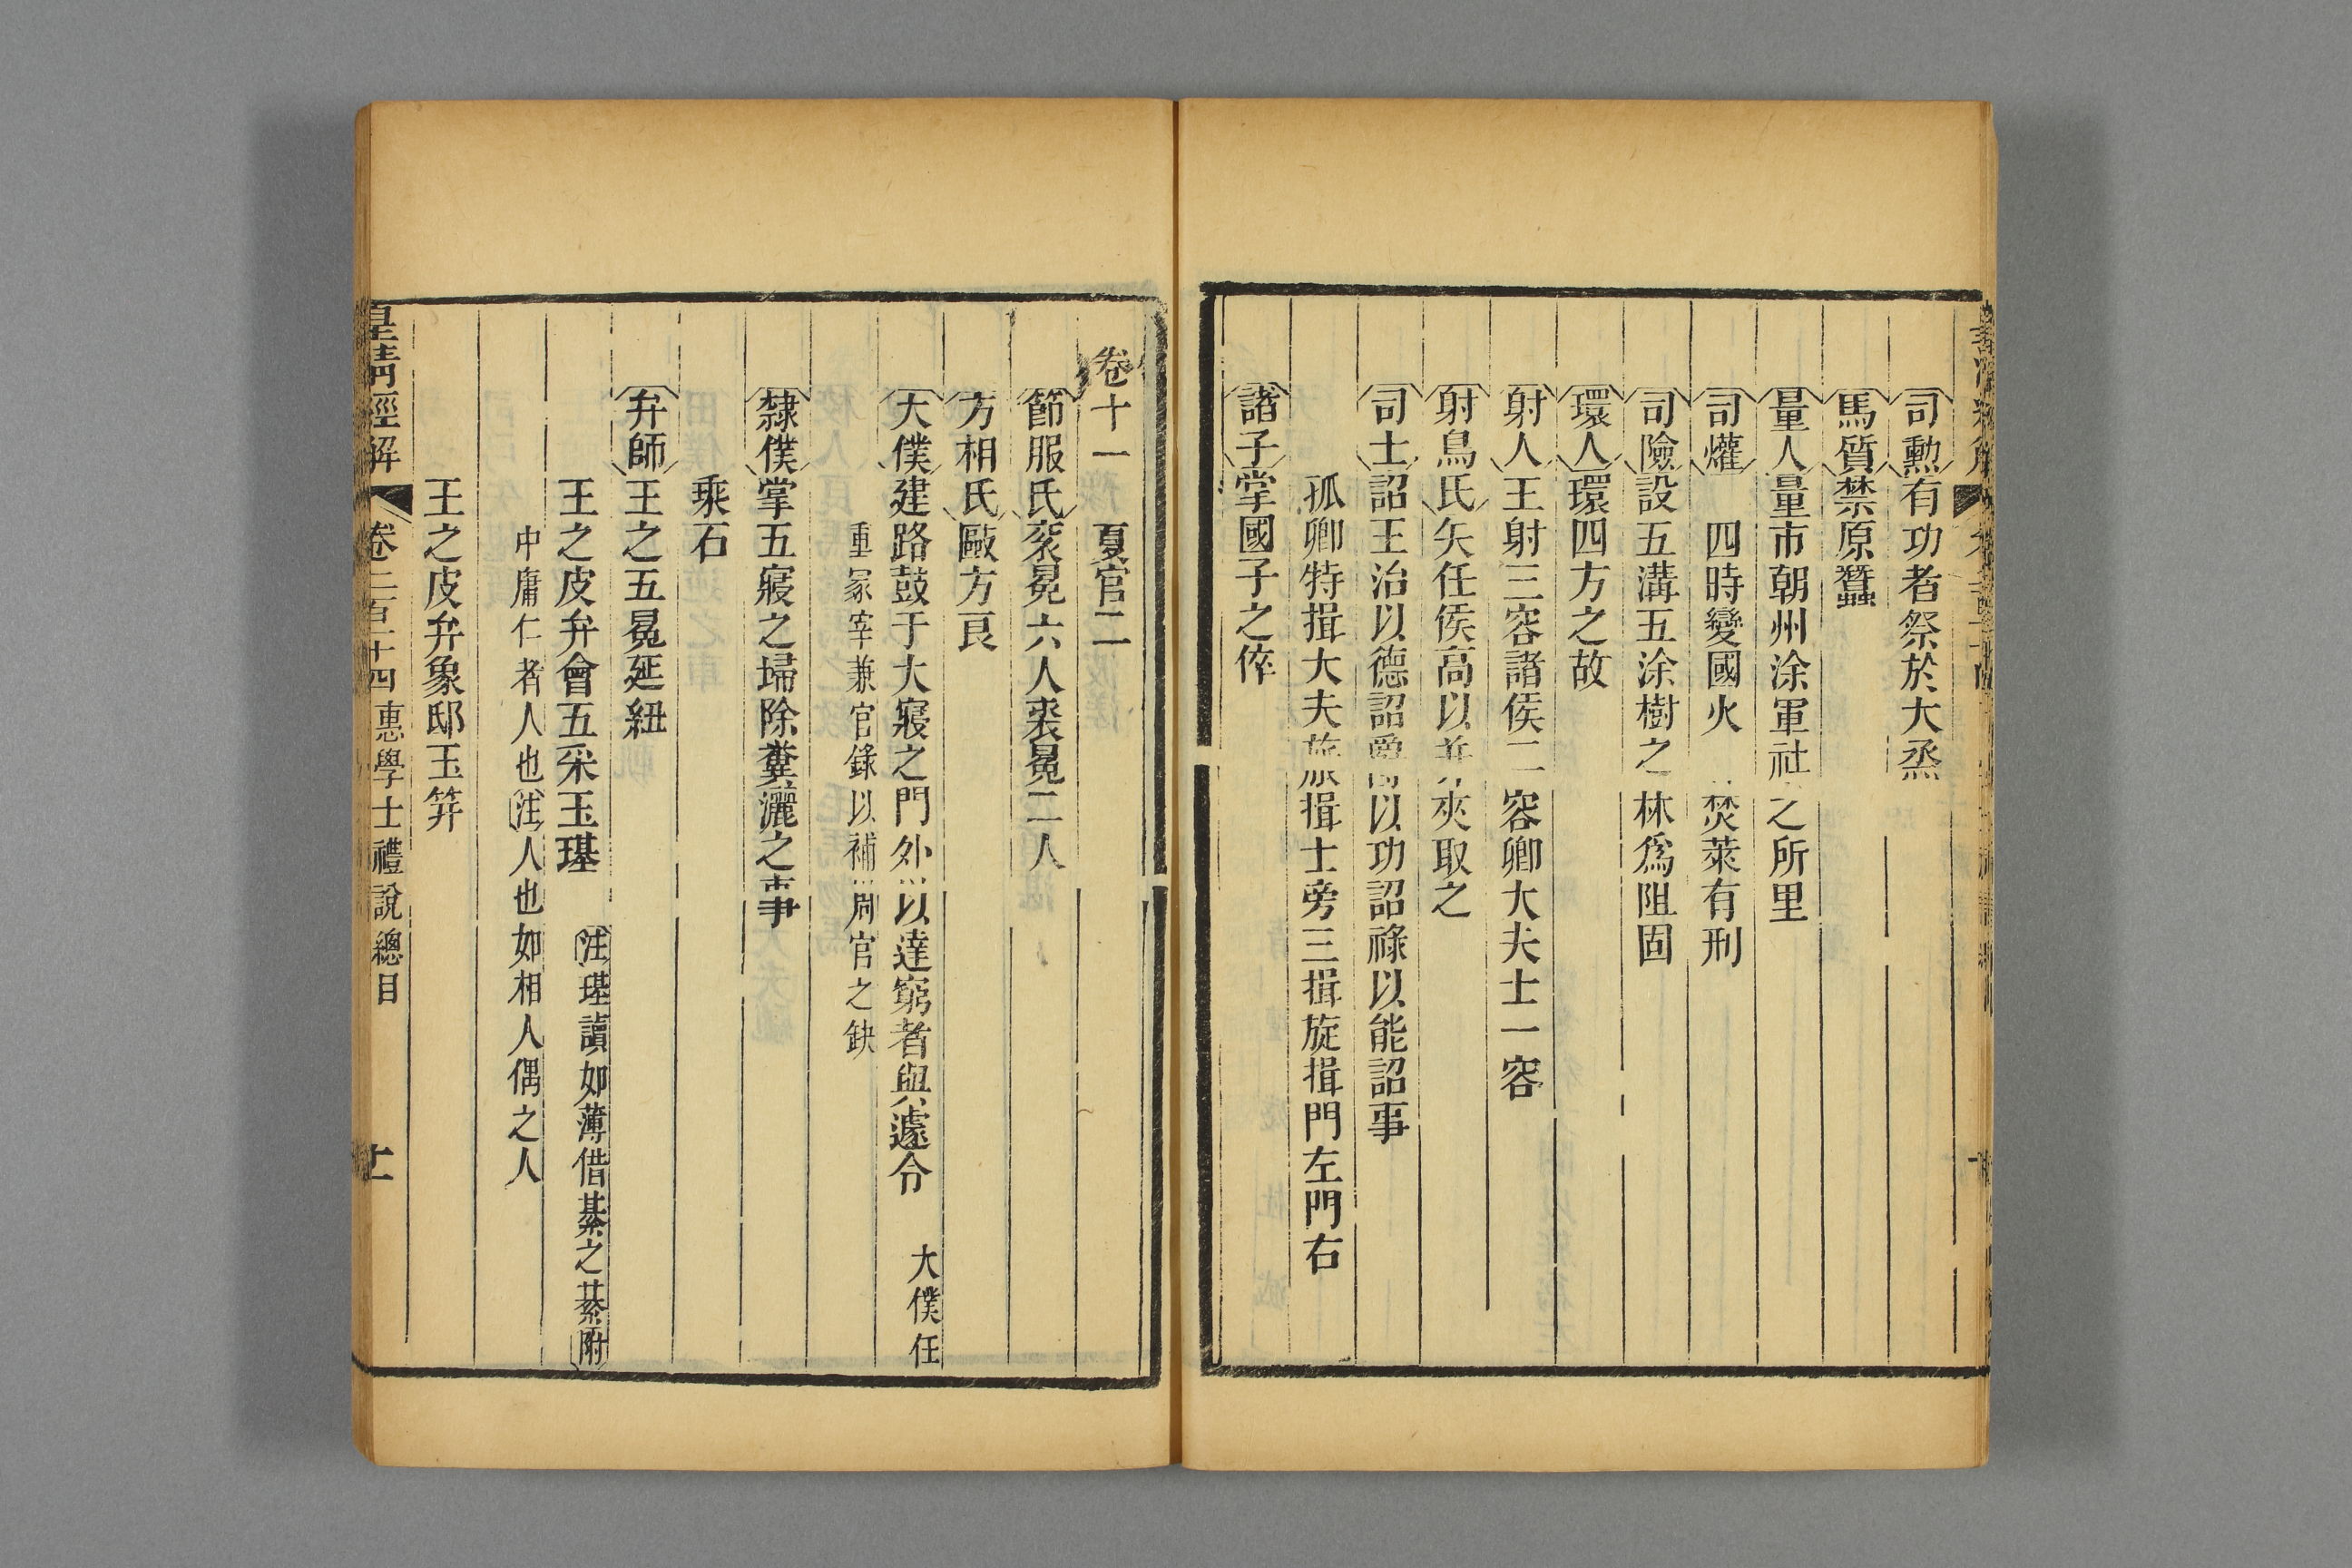 司勳有功者祭於大烝
馬質禁原蠶
量人量市朝州涂軍社之所里
司爟 四時變國火 焚萊有刑
司險設五溝五涂樹之林爲阻固
環人環四方之故
射人王射三容諸侯二容卿大夫士一容
射鳥氏矢任侯高以并夾取之
司士詔王治以德詔爵以功詔祿以能詔事
孤卿特揖大夫旅揖士旁三揖旋揖門左門右
諸子掌國子之倅
卷十一 夏官二
節服氏衮冕六人裘冕二人
方相氏毆方良
大僕建路鼓于大寢之門外以達窮者與遽令 大僕任
重冢宰兼官錄以補周官之缺
隸僕掌五寢之埽除糞灑之事
乘石
弁師王之五冕延紐
王之皮弁會五采玉璂 注璂讀如薄借綦之綦附
中庸仁者人也注人也如相人偶之人
王之皮弁象邸玉笄
皇清經解 卷二百十四惠學士禮說總目 十一